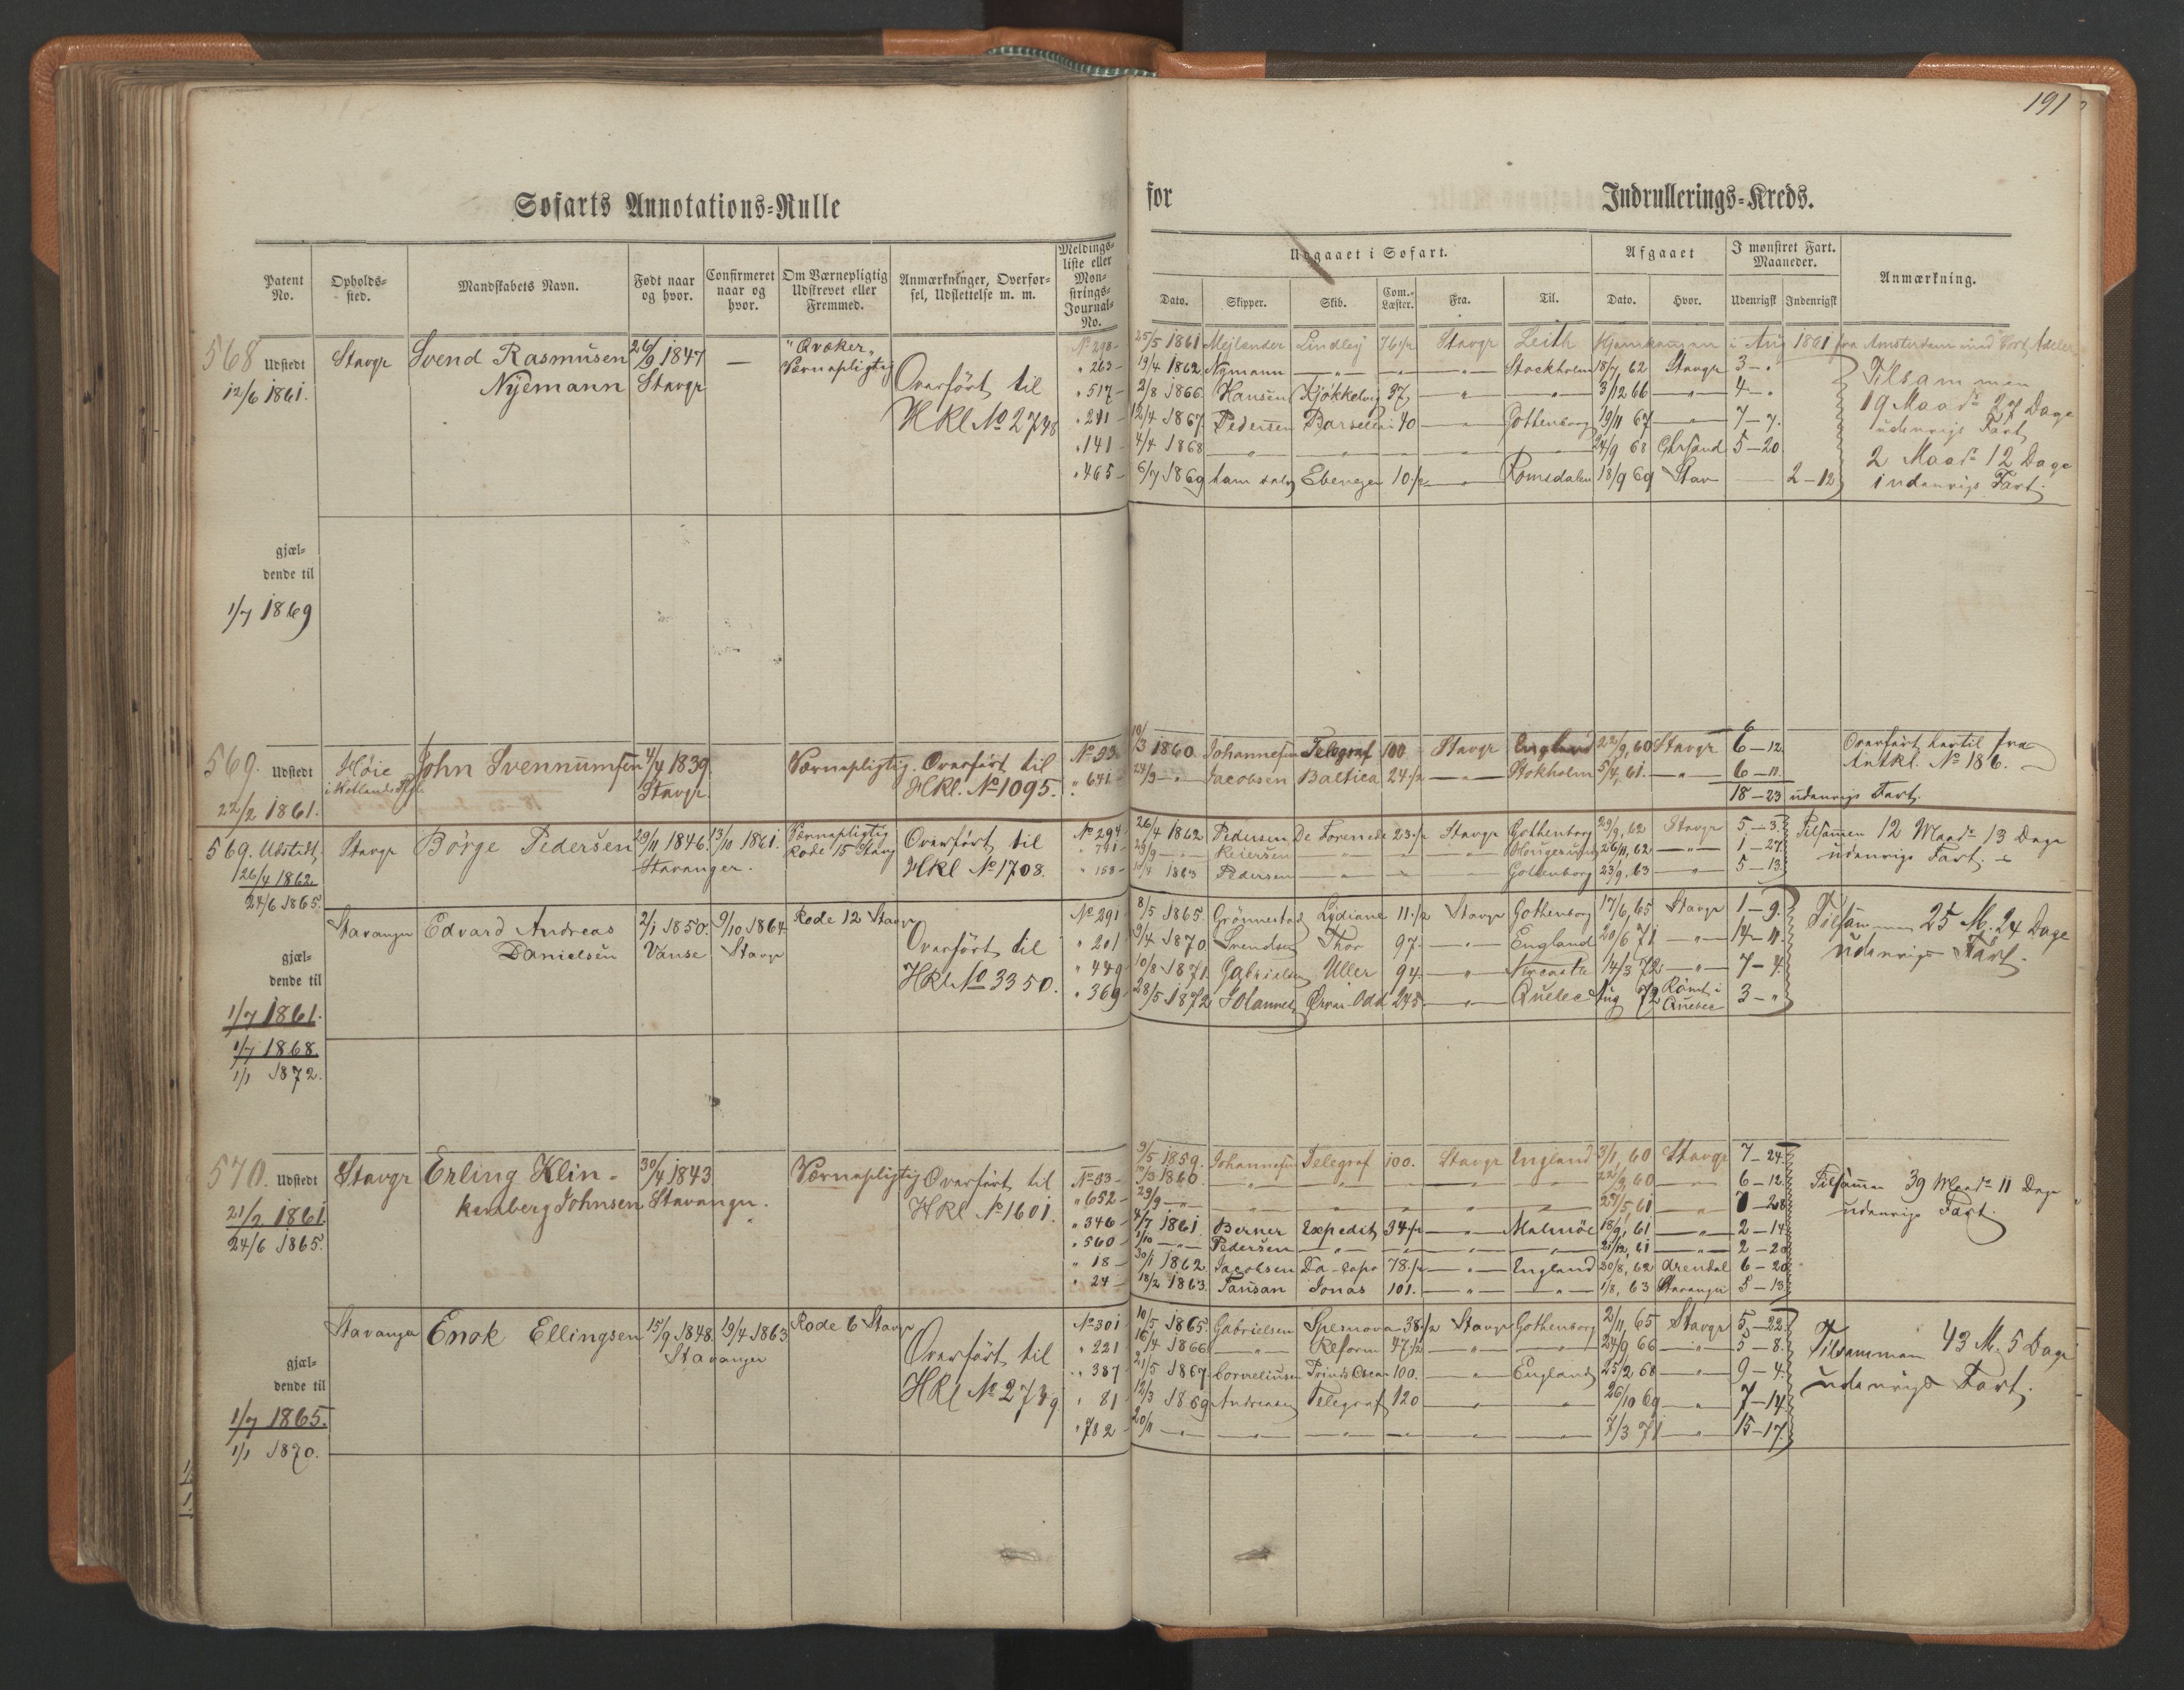 191
Søfarts Annotations-Rulle
for Indrullerings-Kreds.
Patent No.
Opholds-sted.
Mandskabets Navn.
Født naar og hvor.
Confirmeret naar og hvor.
Om Værnepligtig Udskrevet eller Fremmed.
Anmærkninger, Overførsel, Udslettelse m. m.
Meldings-liste eller Mønstrings-Journal-No.
Udgaaet i Søfart.
Dato. Skipper. Skib. Com.-Læster. Fra. Til.
Afgaaet
Dato. Hvor.
I mønstret Fart. Maaneder.
Udenrigsk Indenrigsk
Anmærkning.
568 Udstedt Stavgr Svend Rasmusen 26/9 1847 — "Qvæker"
12/6 1861. Nyemann Stavgr Værnepligtig Overført til
HKl No 2748
No 298 25/5 1861 Mejlander Lindlej 76 1/2 Stavgr Leith Hjemkommen i Aug 1861 fra Amsterdam
" 263 19/4 1862 Nymann — " — — " — — " — Stockholm 18/7 62 Stavgr 3 — "
" 517 2/8 1866 Hansen Kjøkkelvig 37 — " — — " — 3/12 66 — " — 4 — "
" 241 12/4 1867 Pedersen 40 — " — Gothenborg 19/11 67 — " — 7 — 7.
" 141 4/4 1868 — " — — " — — " — — " — — " — 24/9 68 Chrsand 5 — 20
" 465 6/7 1869 ham selv Ebenezer 10 1/2 — " — Romsdalen 18/9 69 Stav 2 — 12
Tilsammen
19 Maadr 27 Dage
udenrigs Fart
2 Maadr 12 Dage
indenrigs Fart.
gjæl-
dende til
1/7 1869
569. Udstedt Høie John Svennumsen 4/4 1839. Værnepligtig. Overført til
22/2 1861. i Hetlands Stavgr. HKl. No 1095.
No 33 10/3 1860 Johannesen Telegraf 100 Stavgr England 22/9, 60 Stavgr 6 — 12
" 641 24/9 — " — Jacobsen Baltica 24 1/2 — " — Stokholm 5/4, 61. — " — 6 — 11.
18 — 23 udenrigs Fart.
Overført hertil fra
Antkl. No 186.
569. Udstedt Stavgr Börge Pedersen 29/11 1846. 13/10 1861. Værnepligtig Overført til
26/4 1862. Stavanger. Rode 15 Stavg HKl No 1708.
24/6 1865.
No 294 26/4 1862 Pedersen De Forenede 23 1/2 Stavgr Gothenborg 29/9, 62 Stavgr 5 — 3.
" 791 29/9 — " — Reiersen — " — — " — — " — Hougesund 26/11, 62 — " — 1 — 27
" 153 10/4 1863 Pedersen — " — — " — — " — Gothenborg 23/9, 63 — " — 5 — 13
Tilsamen 12 Maadr 13 Dage
udenrigs Fart.
Stavanger Edvard Andreas 2/1 1850. 9/10 1864 Rode 12 Stavgr
Danielsen Vanse Stavgr Overført til
HKl No 3350.
No 291 8/5 1865. Grönnestad Lydiane 11 1/2 Stavgr Gothenborg 17/6, 65 Stavgr 1 — 9.
" 201 9/4 1870 Svendsen Thor 97. — " — England 20/6 71 — " — 14 — 11.
" 449 10/8 1871 Gabrielsen Uller 94 — " — Newcastle 14/3 72. — " — 7 — 4
" 369 28/5 1872 Johannes Ørvar Odd 245 — " — Quebec Aug 72 Römt i Quebec 3 — "
Tilsammen 25 M. 24 Dage
udenrigs Fart.
gjæl-
dende til
1/7 1861.
1/7 1868.
1/1 1872.
570. Udstedt Stavgr Erling Klin- 30/4 1843 Værnepligtig Overført til
21/2 1861 kenberg Johnsen Stavanger. HKl No 1601.
24/6 1865.
9/5 1859. Johannesen Telegraf 100. Stavgr England 3/1, 60 Stavgr 7 — 24
No 33 10/3 1860. — " — — " — — " — — " — 22/9, 60 — " — 6 — 12
" 652 29/9 — " — — " — — " — — " — — " — 29/5, 61 — " — 7 — 28
" 346 4/7 1861 Berner Expedit 34 1/2 — " — Malmöe 18/9, 61 — " — 2 — 14
" 560 1/10 — " — Pedersen — " — — " — — " — — " — 21/12, 61 — " — 2 — 20
" 18 30/1 1862. Jacobsen Da-Capo 78 1/2 — " — England 20/8, 62 Arendal 6 — 20
" 24 18/2 1863. Tausan Jonas 101. — " — — " — 1/8, 63 Stavanger 5 — 13
Tilsamen 39 Maadr 11 Dage
udenrigs Fart.
Stavanger Enok Ellingsen 15/9 1848. 19/4 1863 Rode 6 Stavgr
Stavanger Overført til
HKl No 2739
No 301 10/5 1865. Gabrielsen Spesnova 38 1/2 Stavgr Gothenborg 2/11, 65 Stavgr 5 — 22
" 221 16/4 1866 — " — Reform 47 1/2 — " — — " — 24/9 66 — " — 5 — 8.
" 387 21/5 1867 Corneliusen Prinds Oscar 100. — " — England 25/2 68 — " — 9 — 4.
" 81 12/3 1869 Andreasen Telegraf 120 — " — — " — 26/10 69 — " — 7 — 14
" 782 20/11 — " — — " — — " — — " — — " — — " — 7/3 71 — " — 15 — 17.
Tilsamman 43 M. 5 Dage
udenrigs Fart.
gjæl-
dende til
1/7 1865.
1/1 1870.